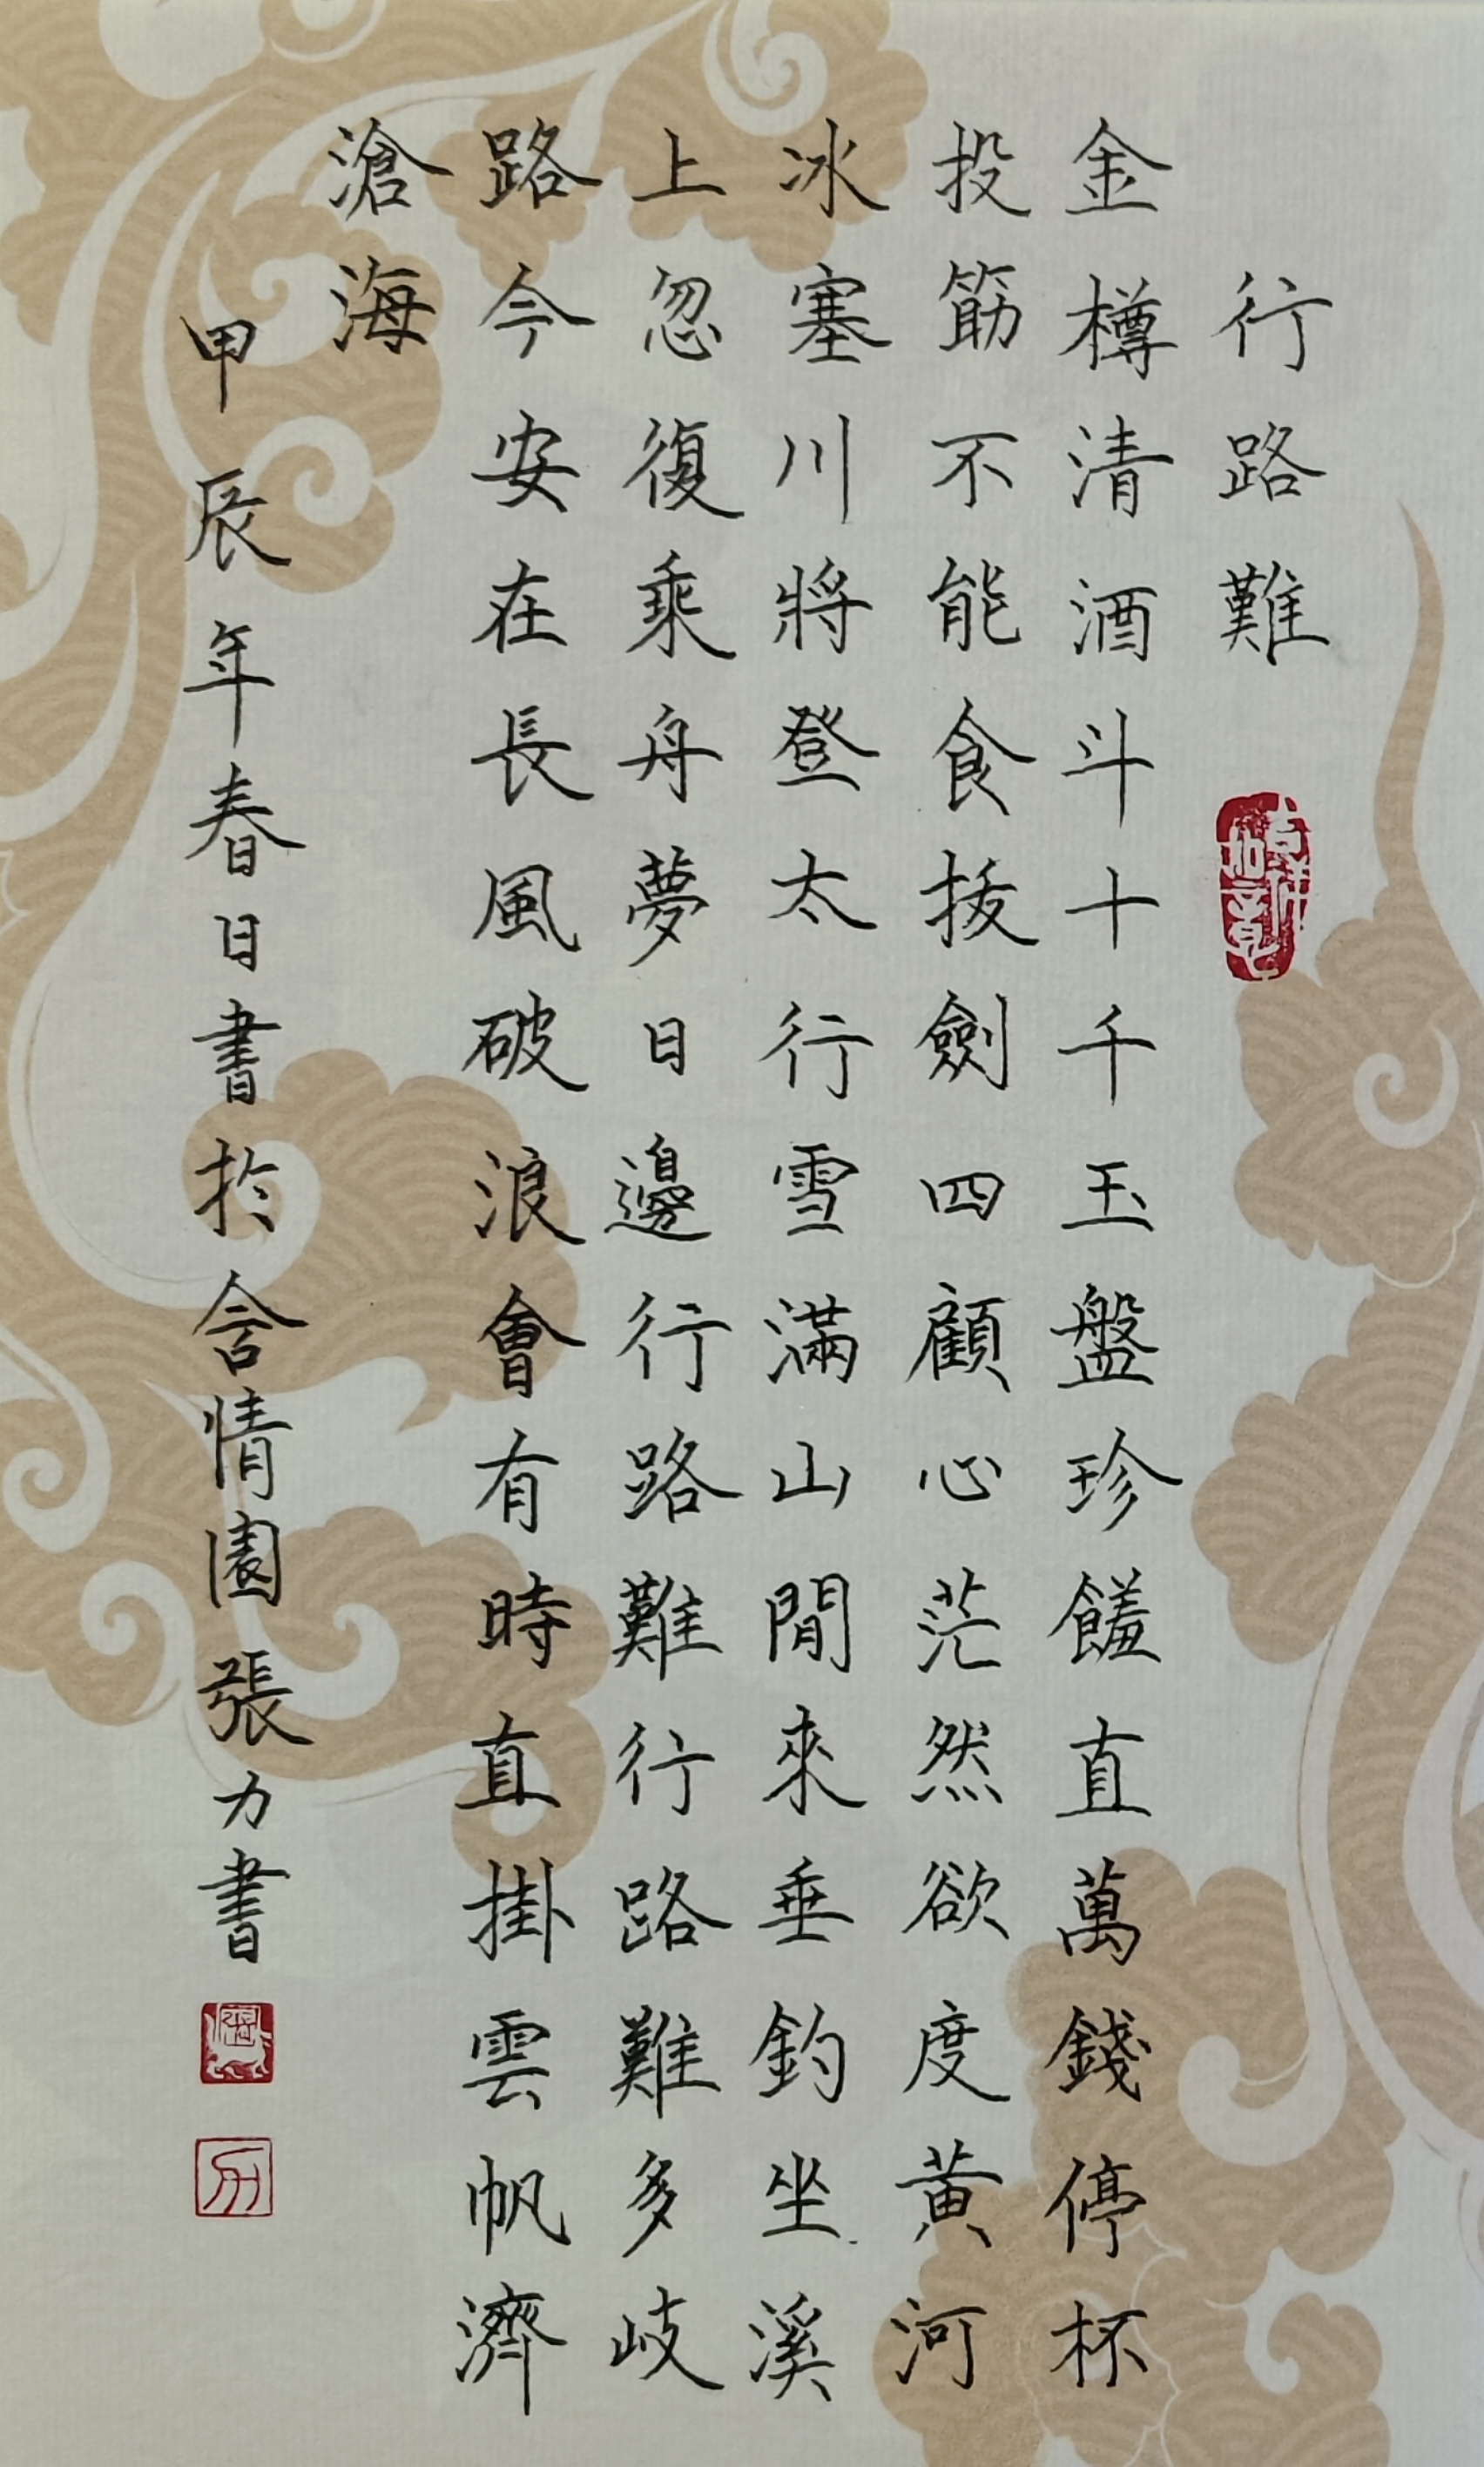 行路難
金樽清酒斗十千玉盤珍饈直萬錢停杯
投筯不能食拔劍四顧心茫然欲度黃河
冰塞川將登太行雪滿山閒來垂釣坐溪
上忽復乘舟夢日邊行路難行路難多岐
路今安在長風破浪會有時直掛雲帆濟
滄海
甲辰年春日書於含情園張力書